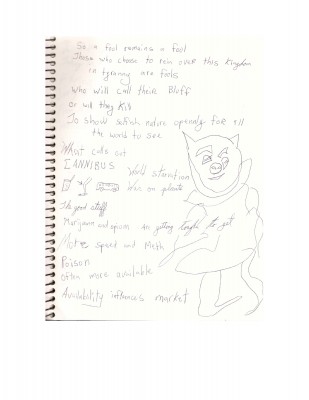 So a fool remains a fool
Those who choose to rein over this Kingdom
in tyranny are fools
Who will call their Bluff
or will they Kill
To show selfish nature openaly for all
the world to see
What calls out
CANNIBUS World starvation
War on planate
The good stuff
Marijuana and opium are getting tough to get
More speed and Meth
Poison
often more available
Availability influences market